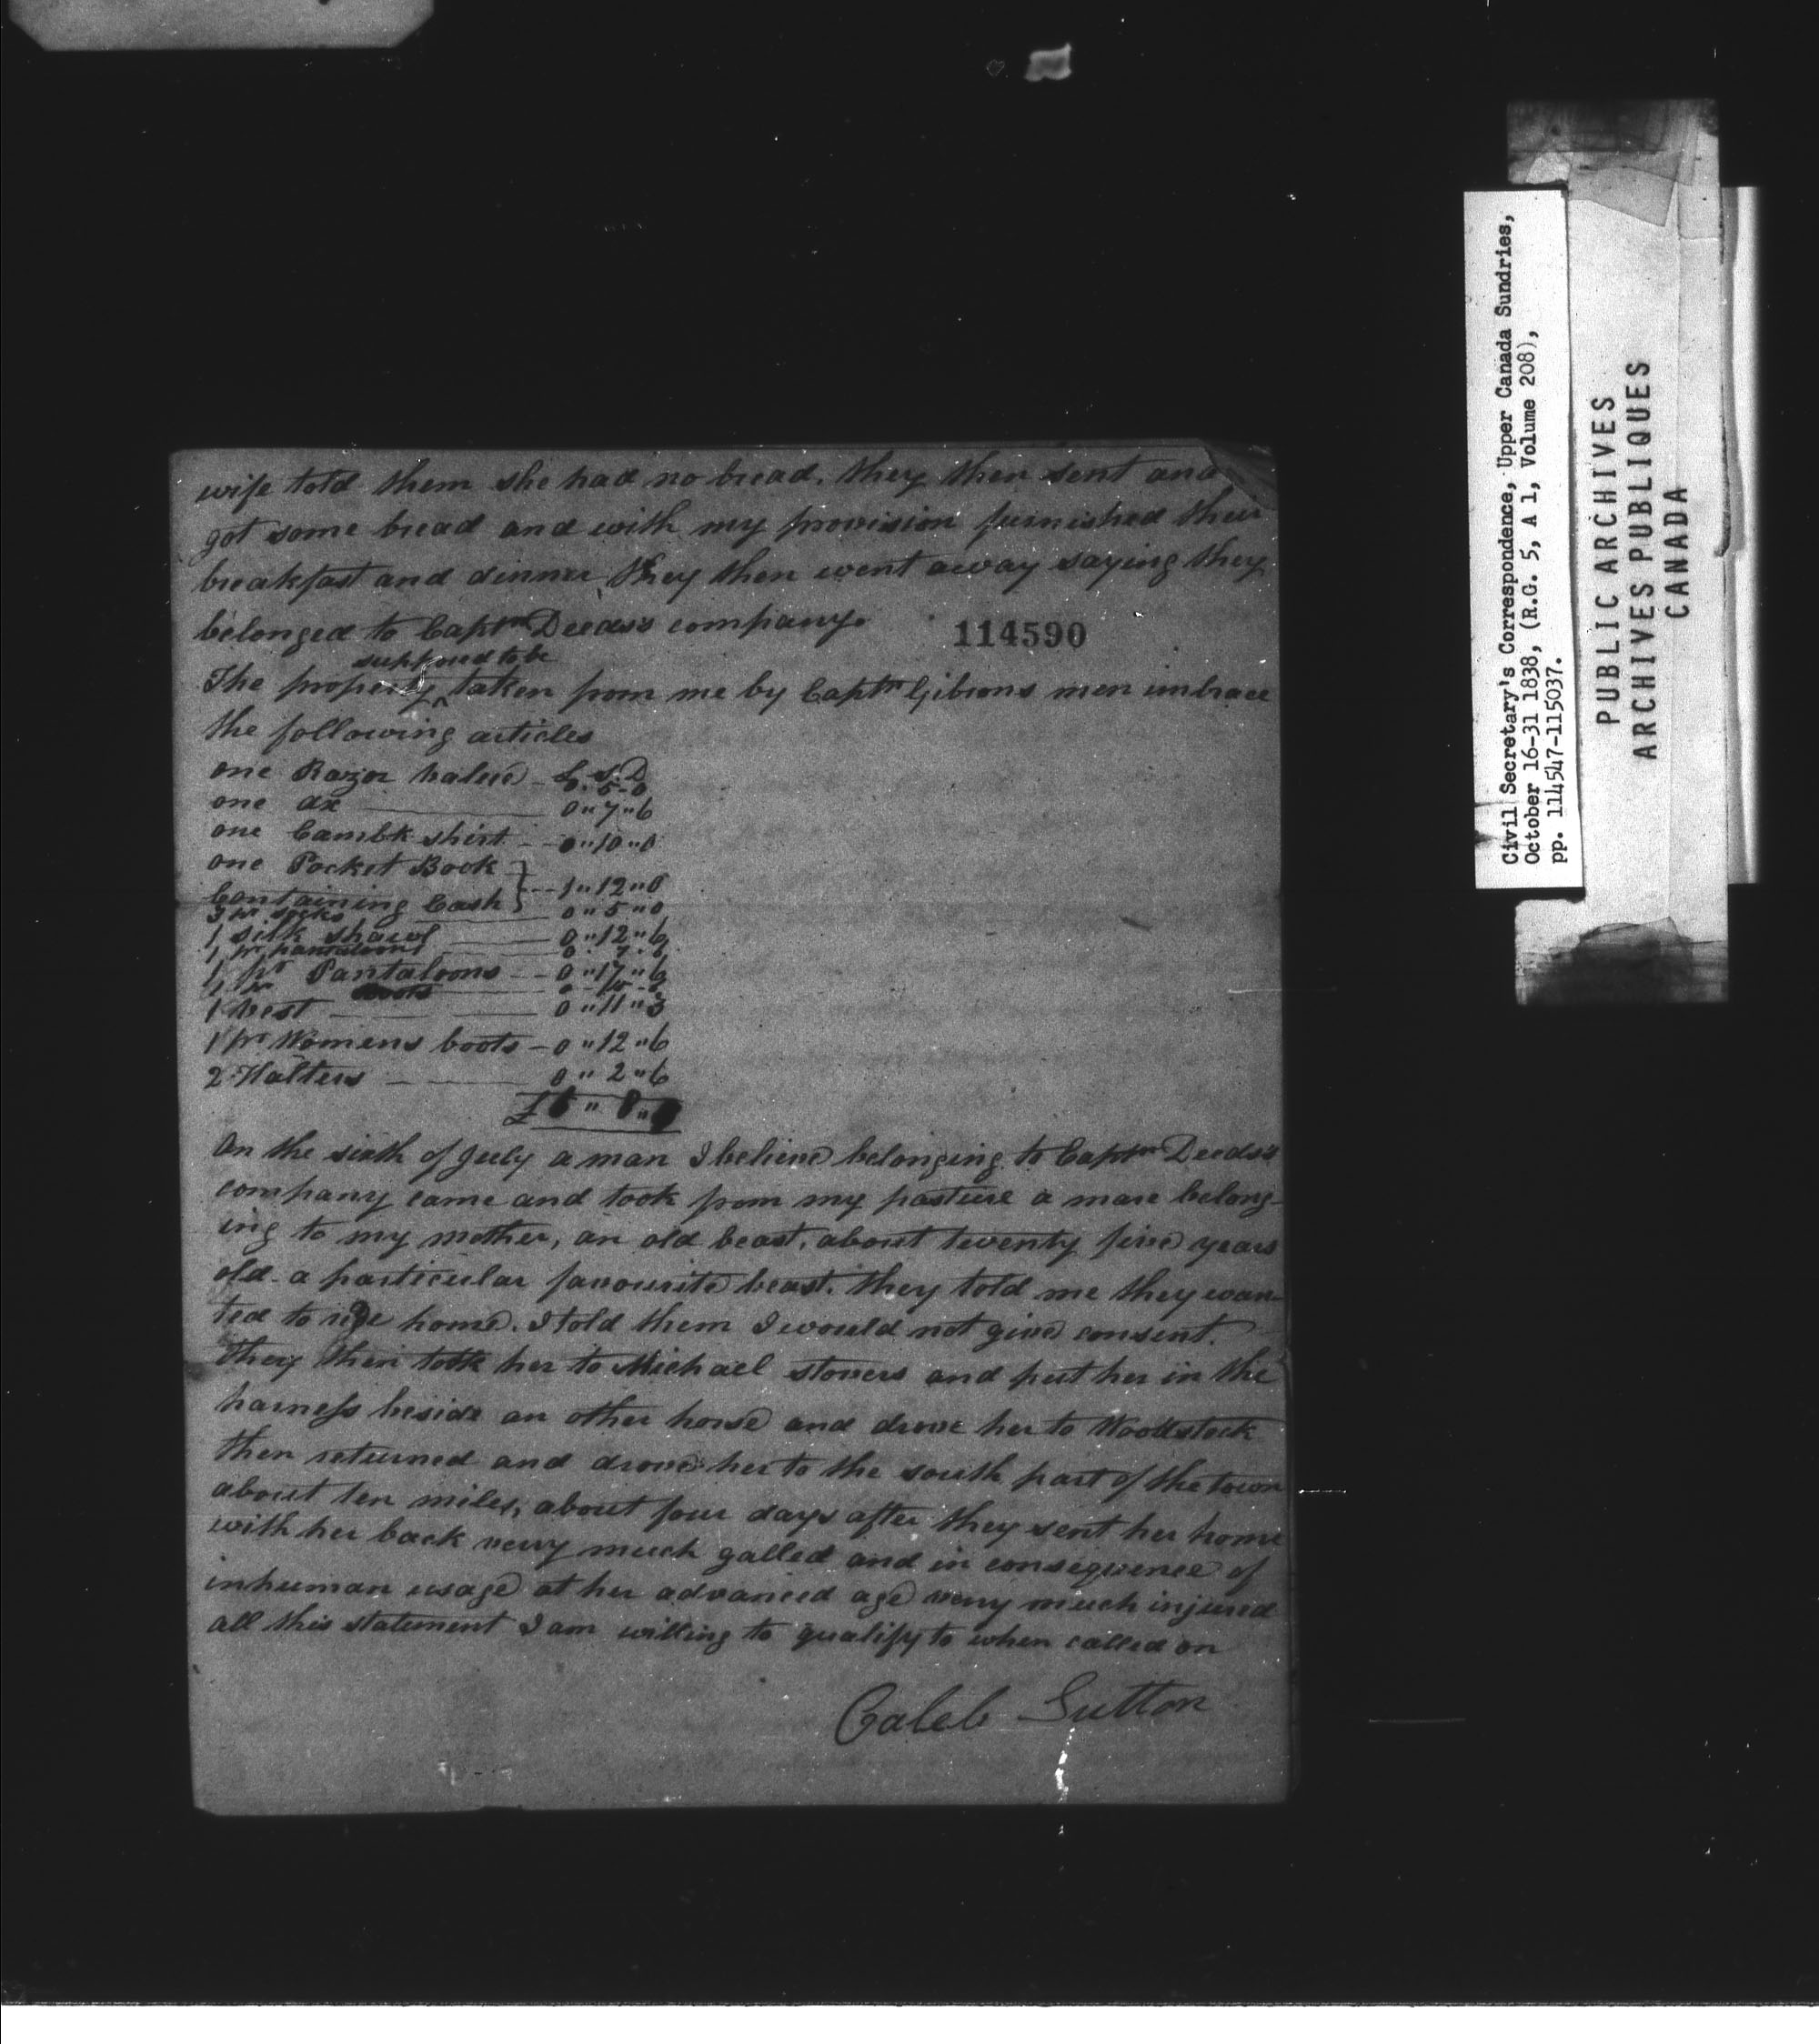 wife told them she had no bread. they then sent and
got some bread and with my provision furnished their
breakfast and dinner they then went away saying they
belonged to Captn Deeds's company.
114590
supposed to be
The property ^ taken from me by Captn Gibsons men imbrace
the following articles
one Razor value - £ S. D
0. 5-0
one ax — 0 " 7 " 6
one Cambk shirt - 0 " 10 " 0
one Pocket Book
Containing Cash } - 1 " 12 " 0
3 pr socks — 0 " 5 " 0
1 silk shawl — 0 " 12 " 6
1 pr pantaloons — 0. 7. 6
1 pr Pantaloons - 0 " 17 " 6
1 pr boots
1 vest — 0 " 11 " 3
1 pr Womens boots - 0 " 12 " 6
2 Halters — 0 " 2 " 6
£
on the sixth of July a man I believe belonging to Captn Deeds's
company came and took from my pasture a mare belong-
ing to my mother, an old beast, about twenty five years
old - a particular favourite beast. they told me they wan-
ted to ride home. I told them I would not give consent.
they then took her to Michael stovers and put her in the
harness beside an other horse and drove her to Woodstock
then returned and drove her to the south part of the town
about ten miles, about four days after they sent her home
with her back very much galled and in consequence of
inhuman usage at her advanced age very much injured
all this statement I am willing to qualify to when called on
Caleb Sutton
Civil Secretary's Correspondence, Upper Canada Sundries,
October 16-31 1838, (R.G. 5, A 1, Volume 208),
pp. 114547-115037.
PUBLIC ARCHIVES
ARCHIVES PUBLIQUES
CANADA